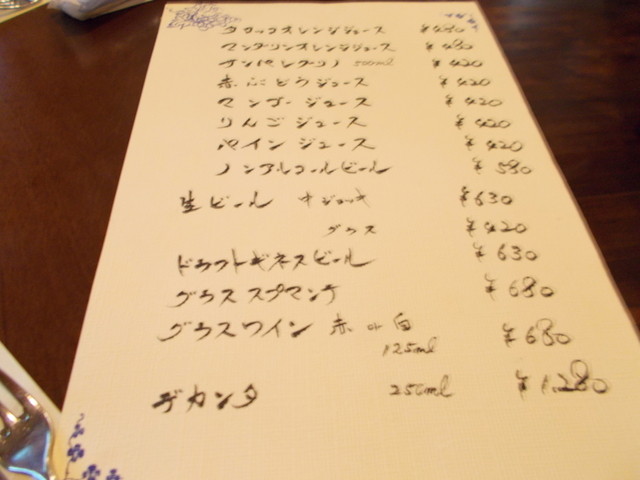 タロッコオレンジジュース ¥480
マンダリンオレンジジュース ¥480
サンペレグリノ 500ml ¥420
赤ぶどうジュース ¥420
マンゴージュース ¥420
りんごジュース ¥420
パインジュース ¥420
ノンアルコールビール ¥580
生ビール 中ジョッキ ¥630
グラス ¥420
ドラフトギネスビール ¥630
グラススプマンテ ¥680
グラスワイン 赤 or 白 ¥680
125ml
デカンタ 250ml ¥1,280